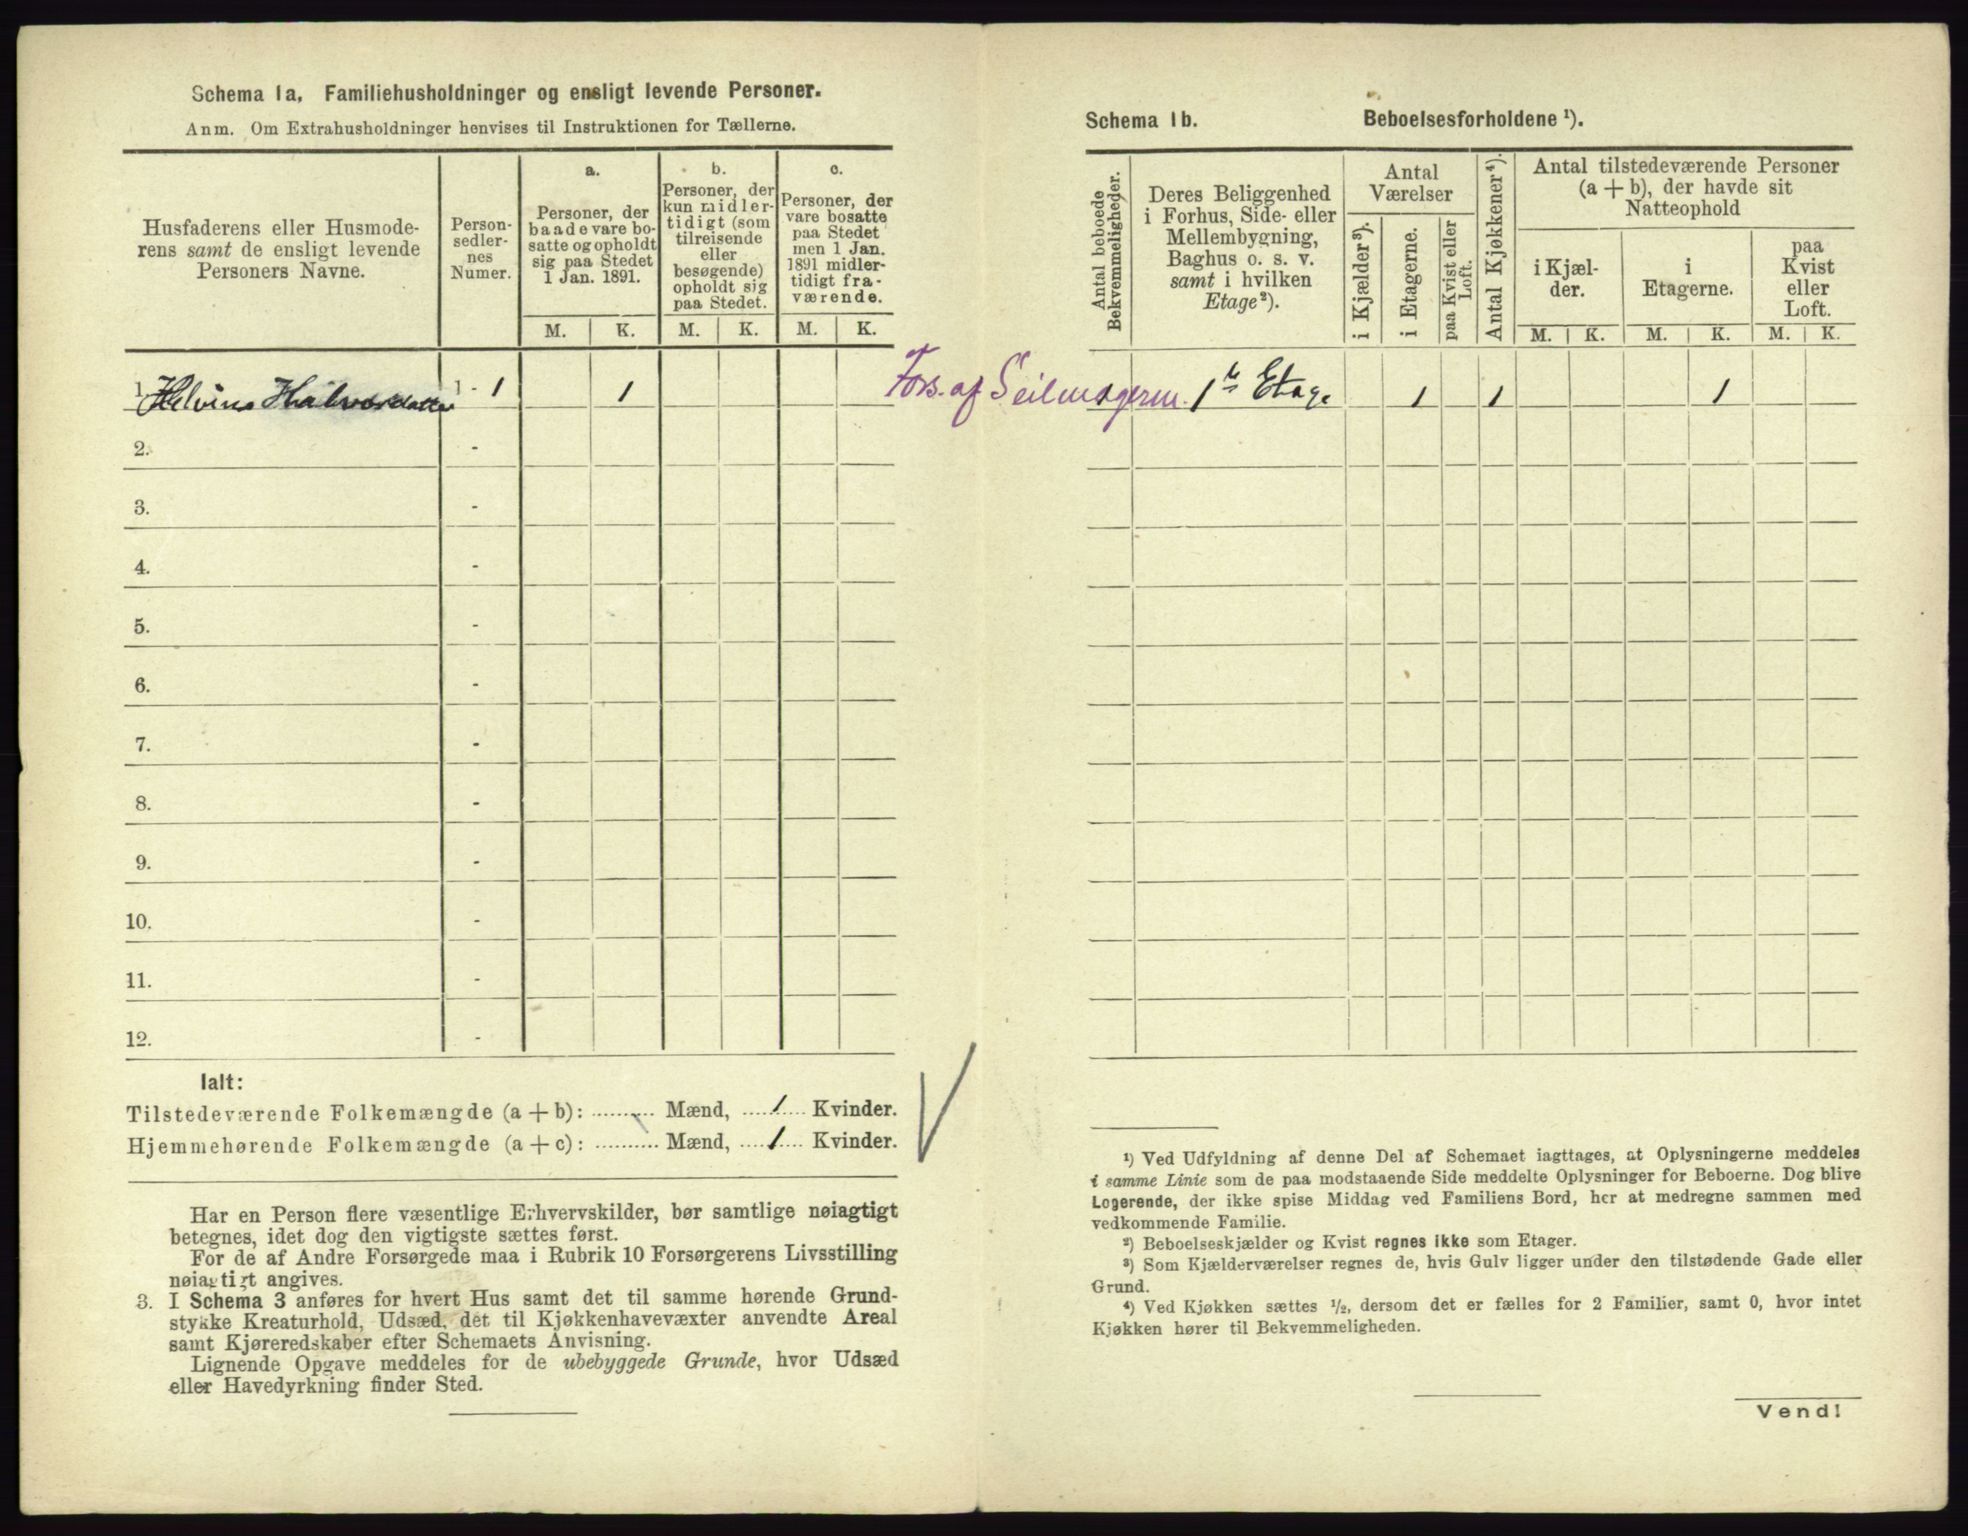 Schema 1a. Familiehusholdninger og ensligt levende Personer.
Anm. Om Extrahusholdninger henvises til Instruktionen for Tællerne.
Husfaderens eller Husmode-
rens samt de ensligt levende
Personers Navne.
Person-
sedler-
nes
Numer.
a.
Personer, der
baade vare bo-
satte og opholdt
sig paa Stedet
1 Jan. 1891.
b.
Personer, der
kun midler-
tidigt (som
tilreisende
eller
besøgende)
opholdt sig
paa Stedet.
c.
Personer, der
vare bosatte
paa Stedet
men 1 Jan.
1891 midler-
tidigt fra-
værende.
M. K. M. K. M. K.
1. Helvine Halvorsdatter 1 - 1 1
2. -
3. -
4. -
5. -
6. -
7. -
8. -
9. -
10. -
11. -
12. -
Ialt:
Tilstedeværende Folkemængde (a + b): .......... Mænd, ....1.... Kvinder.
Hjemmehørende Folkemængde (a + c): .......... Mænd, ....1.... Kvinder.
Har en Person flere væsentlige Erhvervskilder, bør samtlige nøiagtigt
betegnes, idet dog den vigtigste sættes først.
For de af Andre Forsørgede maa i Rubrik 10 Forsørgerens Livsstilling
nøiagtigt angives.
3. I Schema 3 anføres for hvert Hus samt det til samme hørende Grund-
stykke Kreaturhold, Udsæd, det til Kjøkkenhavevæxter anvendte Areal
samt Kjøreredskaber efter Schemaets Anvisning.
Lignende Opgave meddeles for de ubebyggede Grunde, hvor Udsæd
eller Havedyrkning finder Sted.
Schema 1b. Beboelsesforholdene ¹).
Antal beboede
Bekvemmeligheder.
Deres Beliggenhed
i Forhus, Side- eller
Mellembygning,
Baghus o. s. v.
samt i hvilken
Etage²).
Antal
Værelser
i Kjælder³).
i Etagerne.
paa Kvist eller
Loft.
Antal Kjøkkener⁴).
Antal tilstedeværende Personer
(a + b), der havde sit
Natteophold
i Kjæl-
der.
i
Etagerne.
paa
Kvist
eller
Loft.
M. K. M. K. M. K.
Fors. af Seilmagerm. 1ste Etage 1 1 1
¹) Ved Udfyldning af denne Del af Schemaet iagttages, at Oplysningerne meddeles
i samme Linie som de paa modstaaende Side meddelte Oplysninger for Beboerne. Dog blive
Logerende, der ikke spise Middag ved Familiens Bord, her at medregne sammen med
vedkommende Familie.
²) Beboelseskjælder og Kvist regnes ikke som Etager.
³) Som Kjælderværelser regnes de, hvis Gulv ligger under den tilstødende Gade eller
Grund.
⁴) Ved Kjøkken sættes ½, dersom det er fælles for 2 Familier, samt 0, hvor intet
Kjøkken hører til Bekvemmeligheden.
Vend!